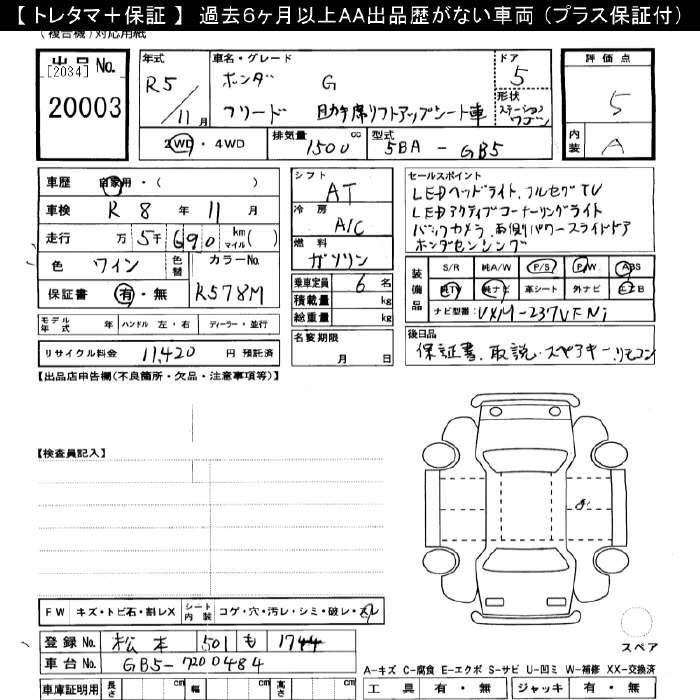 【 トレタマ＋保証 】 過去６ヶ月以上AA出品歴がない車両（プラス保証付）
（複合機）対応用紙
出品No.
[2034]
20003
年式
R5
11月
車名・グレード
ホンダ G
フリード 助手席リフトアップシート車
ドア
5
形状
ステーションワゴン
評価点
5
内装
A
2WD・4WD
排気量 1500 cc
型式 5BA-GB5
車歴 自家用・（ ）
車検 R 8 年 11 月
走行 万 5千 690 km マイル( )
色 ワイン
色替
カラーNo.
R578M
保証書 有・無
シフト
AT
冷房
A/C
燃料
ガソリン
乗車定員 6 名
積載量 kg
総重量 kg
セールスポイント
LEDヘッドライト、フルセグTV
LEDアクティブコーナーリングライト
バックカメラ、両側パワースライドドア
ホンダセンシング
装備品
S/R 純A/W P/S P/W ABS
純TV 純ナビ 革シート 外ナビ エアB
ナビ型番： VXM-237VFNi
モデル年式 年 ハンドル 左・右 ディーラー・並行
リサイクル料金 11,420 円 預託済
名変期限
月 日
後日品
保証書、取説、スペアキー、リモコン
【出品店申告欄(不良箇所・欠品・注意事項等)】
【検査員記入】
FW キズ・トビ石・割レX
シート内装 コゲ・穴・汚レ・シミ・破レ・スレ
登録No. 松本 501 も 1744
車台No. GB5-7200484
車庫証明用 長さ cm 幅 cm 高さ cm
スペア
A-キズ C-腐食 E-エクボ S-サビ U-凹ミ W-補修 XX-交換済
工具 有・無 ジャッキ 有・無